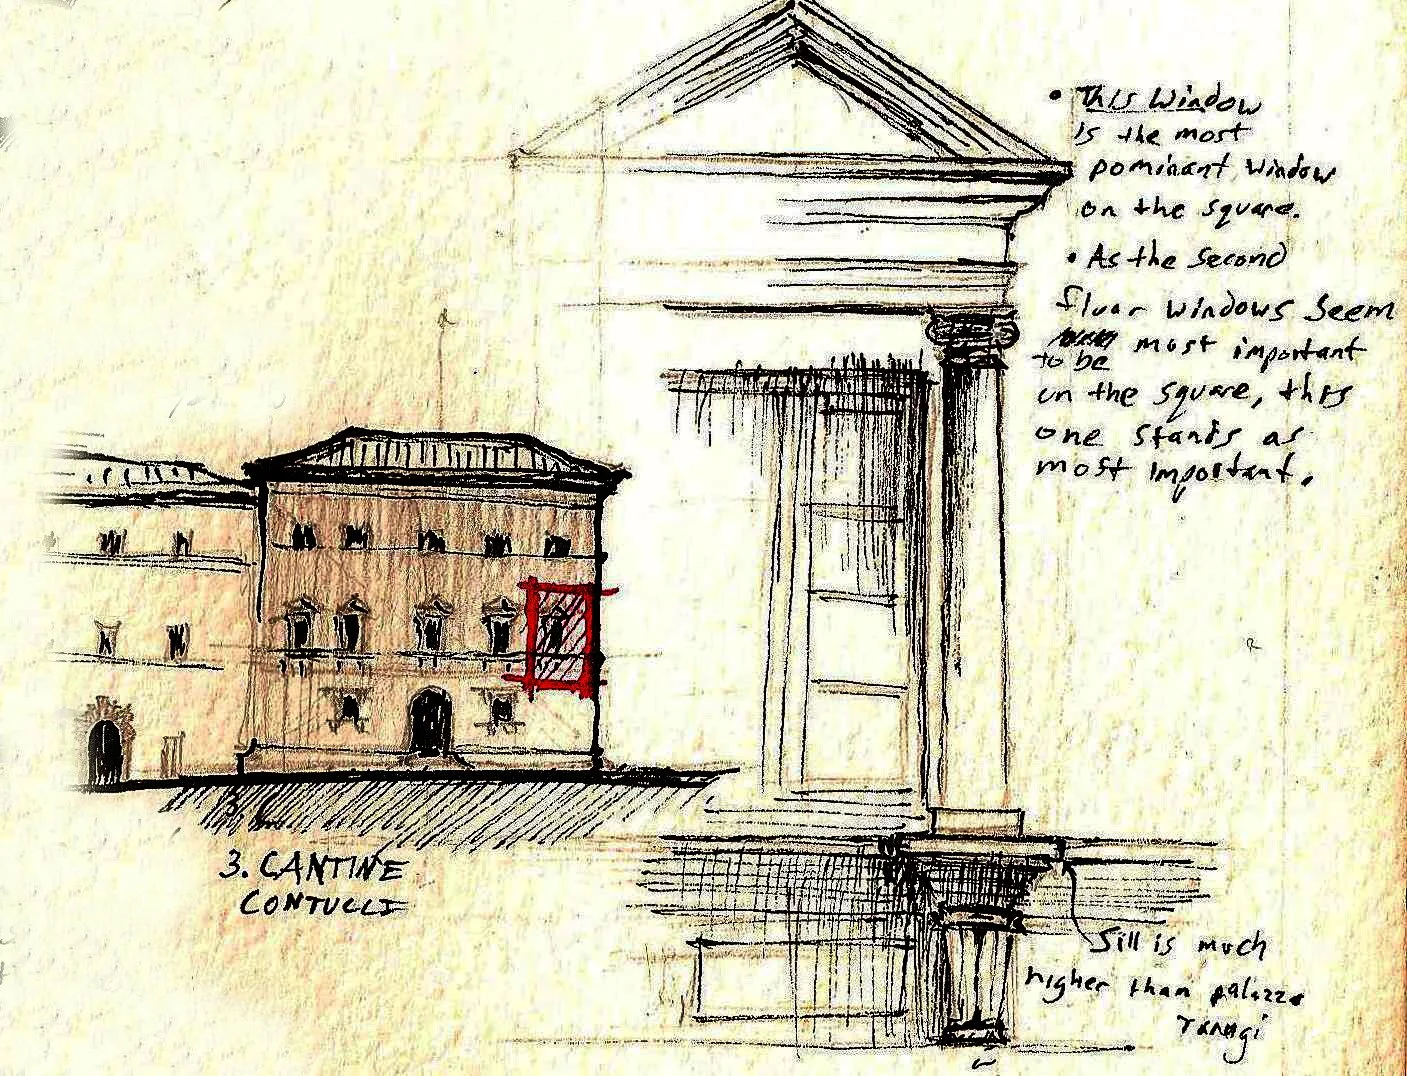 • This Window
is the most
pominant window
on the square.
• As the Second
floor windows seem
to be most important
on the square, this
one stands as
most important.
3. CANTINE
CONTUCCI
Sill is much
higher than palazzo
Tarugi